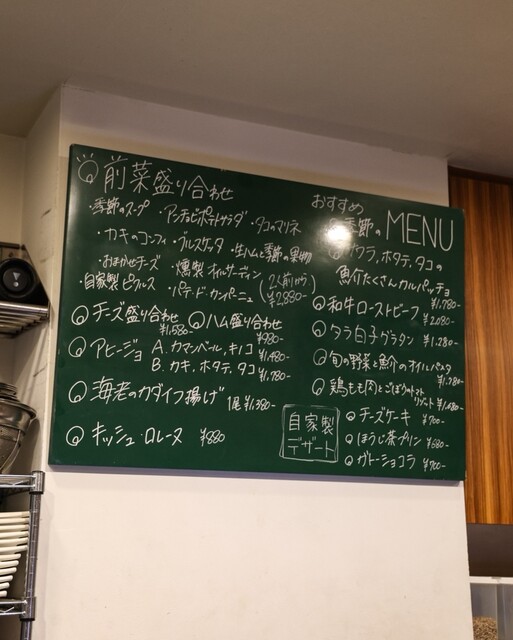 前菜盛り合わせ
・季節のスープ ・アンチョビポテトサラダ ・タコのマリネ
・カキのコンフィ ・ブルスケッタ ・生ハムと季節の果物
・おまかせチーズ ・燻製オイルサーディン
・自家製ピクルス ・パテ・ド・カンパーニュ
(2人前から)
¥2,880-
チーズ盛り合わせ
¥1,580-
ハム盛り合わせ
¥980-
アヒージョ A. カマンベール、キノコ
¥1,480-
B. カキ、ホタテ、タコ
¥1,780-
海老のカダイフ揚げ 1尾 ¥1,380-
キッシュ・ロレーヌ ¥880
おすすめ
季節のMENU
ホタテ、タコの
魚介たくさんカルパッチョ
¥1,780-
和牛ローストビーフ ¥2,080-
タラ白子グラタン ¥1,280-
旬の野菜と魚介のオイルパスタ
¥1,780-
鶏もも肉とごぼうのトマト
リゾット ¥1,480-
自家製
デザート
チーズケーキ ¥700-
ほうじ茶プリン ¥680-
ガトーショコラ ¥700-